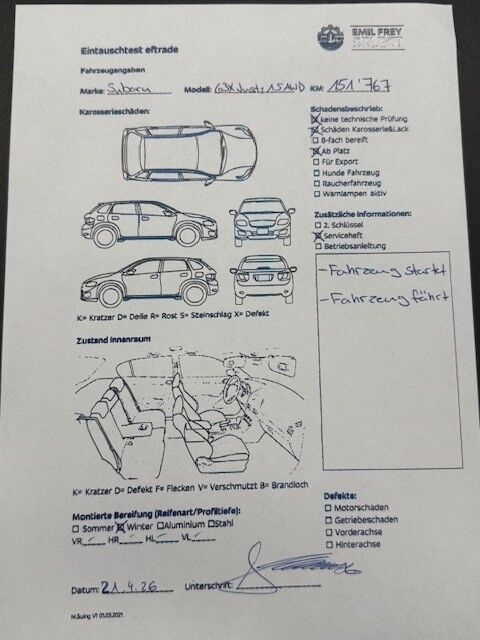 EMIL FREY
Eintauschtest eftrade
Fahrzeugangaben
Marke: Subaru Modell: G3X Justy 1.5 AWD KM: 151'767
Karosserieschäden:
Schadensbeschrieb:
keine technische Prüfung
Schäden Karosserie&Lack
8-fach bereift
Ab Platz
Für Export
Hunde Fahrzeug
Raucherfahrzeug
Warnlampen aktiv
Zusätzliche Informationen:
2. Schlüssel
Serviceheft
Betriebsanleitung
- Fahrzeug startet
- Fahrzeug fährt
K= Kratzer D= Delle R= Rost S= Steinschlag X= Defekt
Zustand Innenraum
K= Kratzer D= Defekt F= Flecken V= Verschmutzt B= Brandloch
Montierte Bereifung (Reifenart/Profiltiefe):
Sommer Winter Aluminium Stahl
VR HR HL VL
Defekte:
Motorschaden
Getriebeschaden
Vorderachse
Hinterachse
Datum: 21.4.26 Unterschrift:
M.Suing V1 01.03.2021